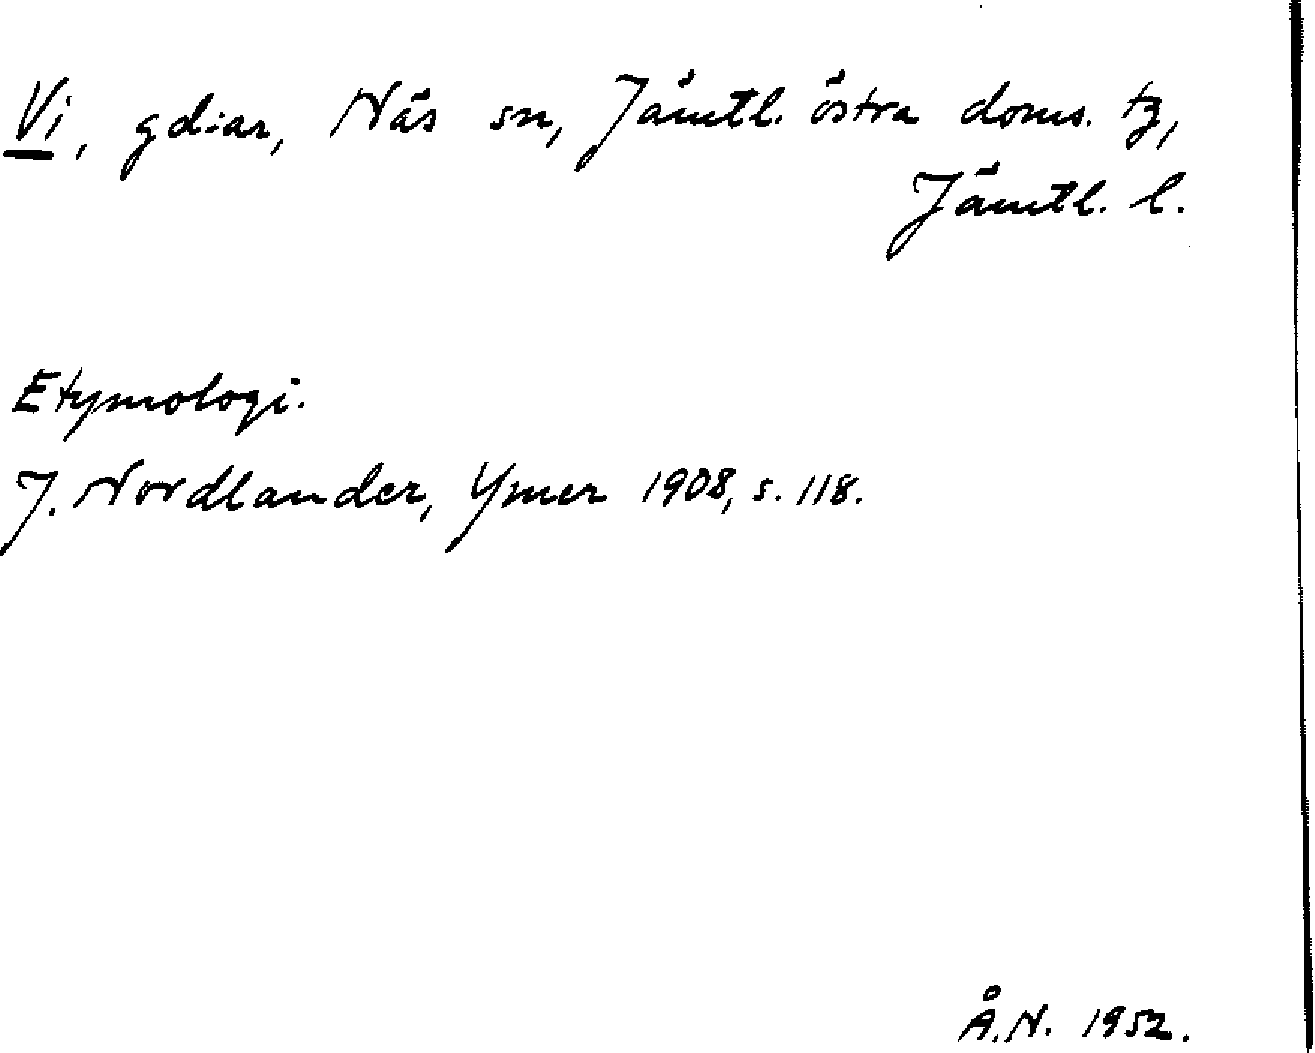 Vi, gd:ar, Näs sn, Jämtl. östra doms. tg,
Jämtl. l.
Etymologi.
J. Nordlander, Ymer 1908, s. 118.
Å.N. 1952.